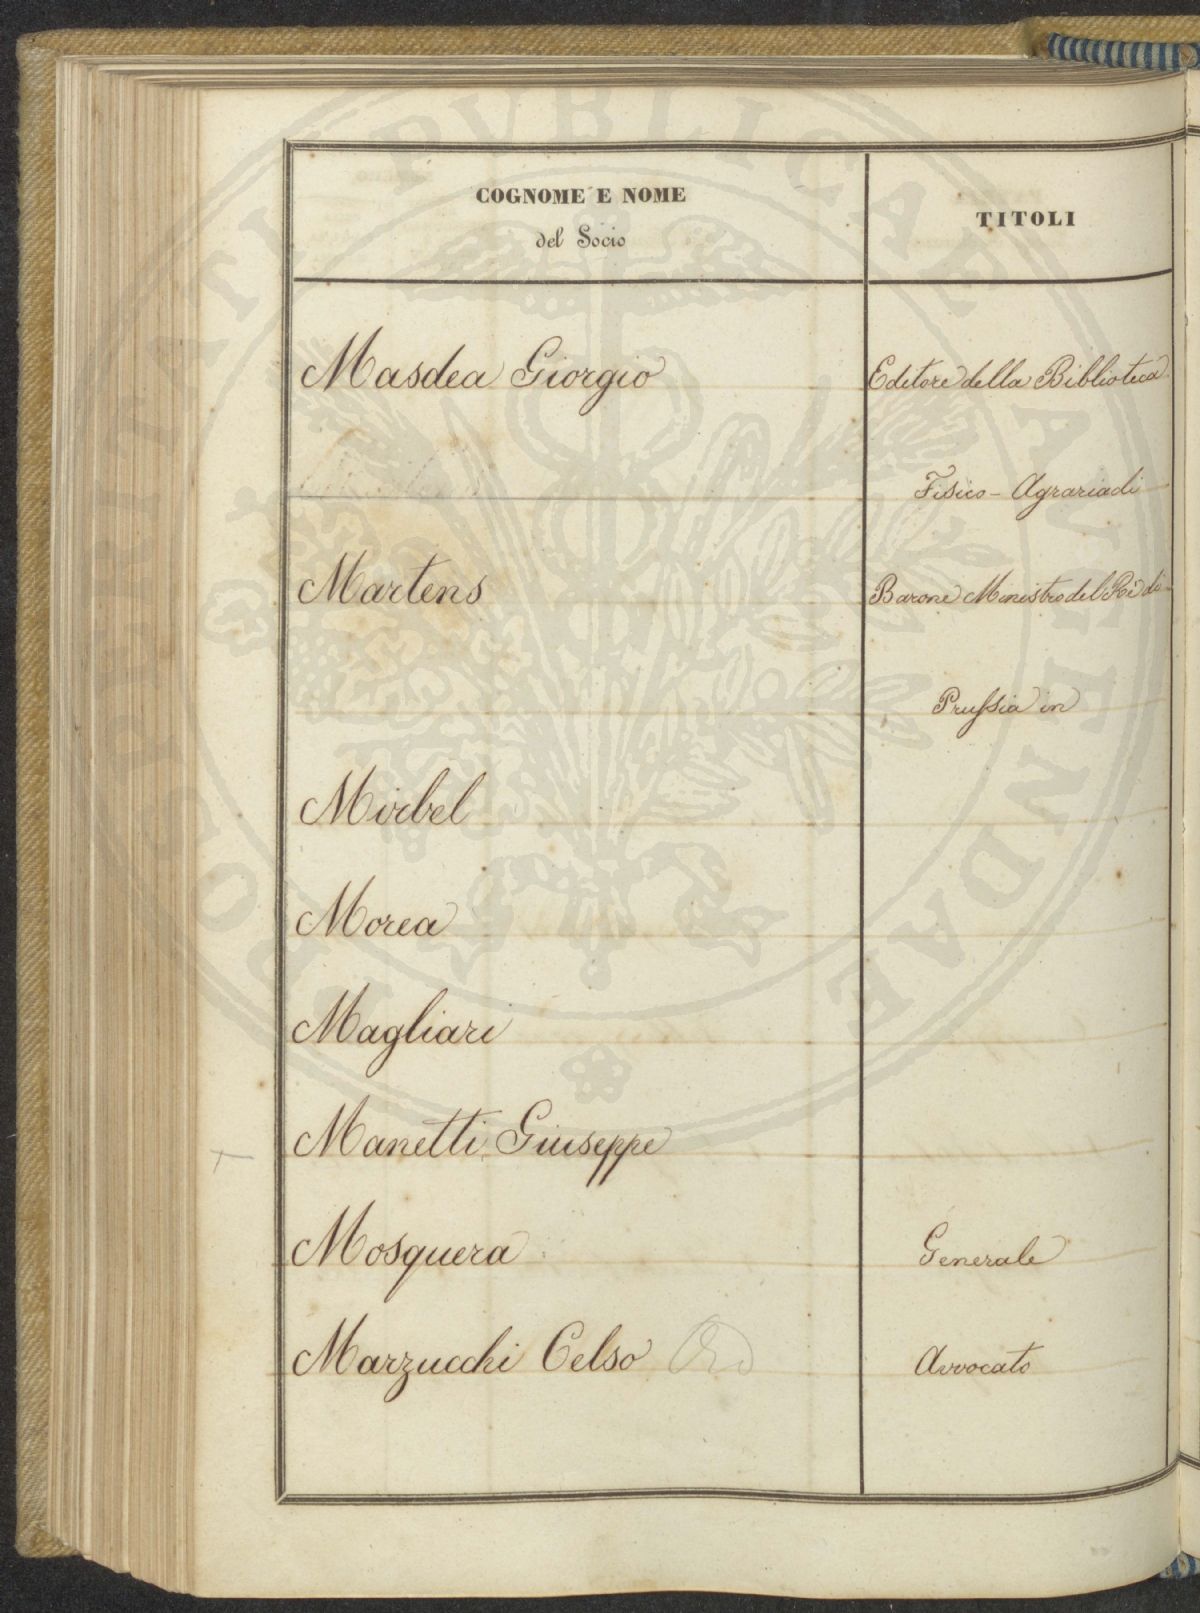 COGNOME E NOME
del Socio
TITOLI
Masdea Giorgio
Editore della Biblioteca
Fisico - Agraria di
Martens
Barone Ministro del Rè di
Prussia in
Mirbel
Morea
Magliari
Manetti Giuseppe
Mosquera
Generale
Marzucchi Celso
Avvocato
PROSPERITATI PVBLICAE AVGENDAE